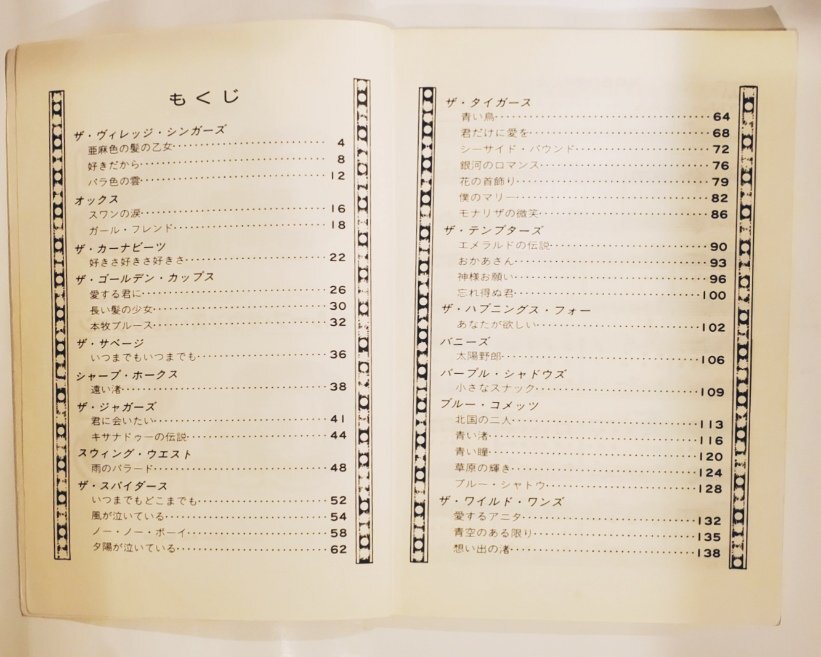 もくじ
ザ・ヴィレッジ・シンガーズ
亜麻色の髪の乙女 4
好きだから 8
バラ色の雲 12
オックス
スワンの涙 16
ガール・フレンド 18
ザ・カーナビーツ
好きさ好きさ好きさ 22
ザ・ゴールデン・カップス
愛する君に 26
長い髪の少女 30
本牧ブルース 32
ザ・サベージ
いつまでもいつまでも 36
シャープ・ホークス
遠い渚 38
ザ・ジャガーズ
君に会いたい 41
キサナドゥーの伝説 44
スウィング・ウエスト
雨のバラード 48
ザ・スパイダース
いつまでもどこまでも 52
風が泣いている 54
ノー・ノー・ボーイ 58
夕陽が泣いている 62
ザ・タイガース
青い鳥 64
君だけに愛を 68
シーサイド・バウンド 72
銀河のロマンス 76
花の首飾り 79
僕のマリー 82
モナリザの微笑 86
ザ・テンプターズ
エメラルドの伝説 90
おかあさん 93
神様お願い 96
忘れ得ぬ君 100
ザ・ハプニングス・フォー
あなたが欲しい 102
バニーズ
太陽野郎 106
パープル・シャドウズ
小さなスナック 109
ブルー・コメッツ
北国の二人 113
青い渚 116
青い瞳 120
草原の輝き 124
ブルー・シャトウ 128
ザ・ワイルド・ワンズ
愛するアニタ 132
青空のある限り 135
想い出の渚 138